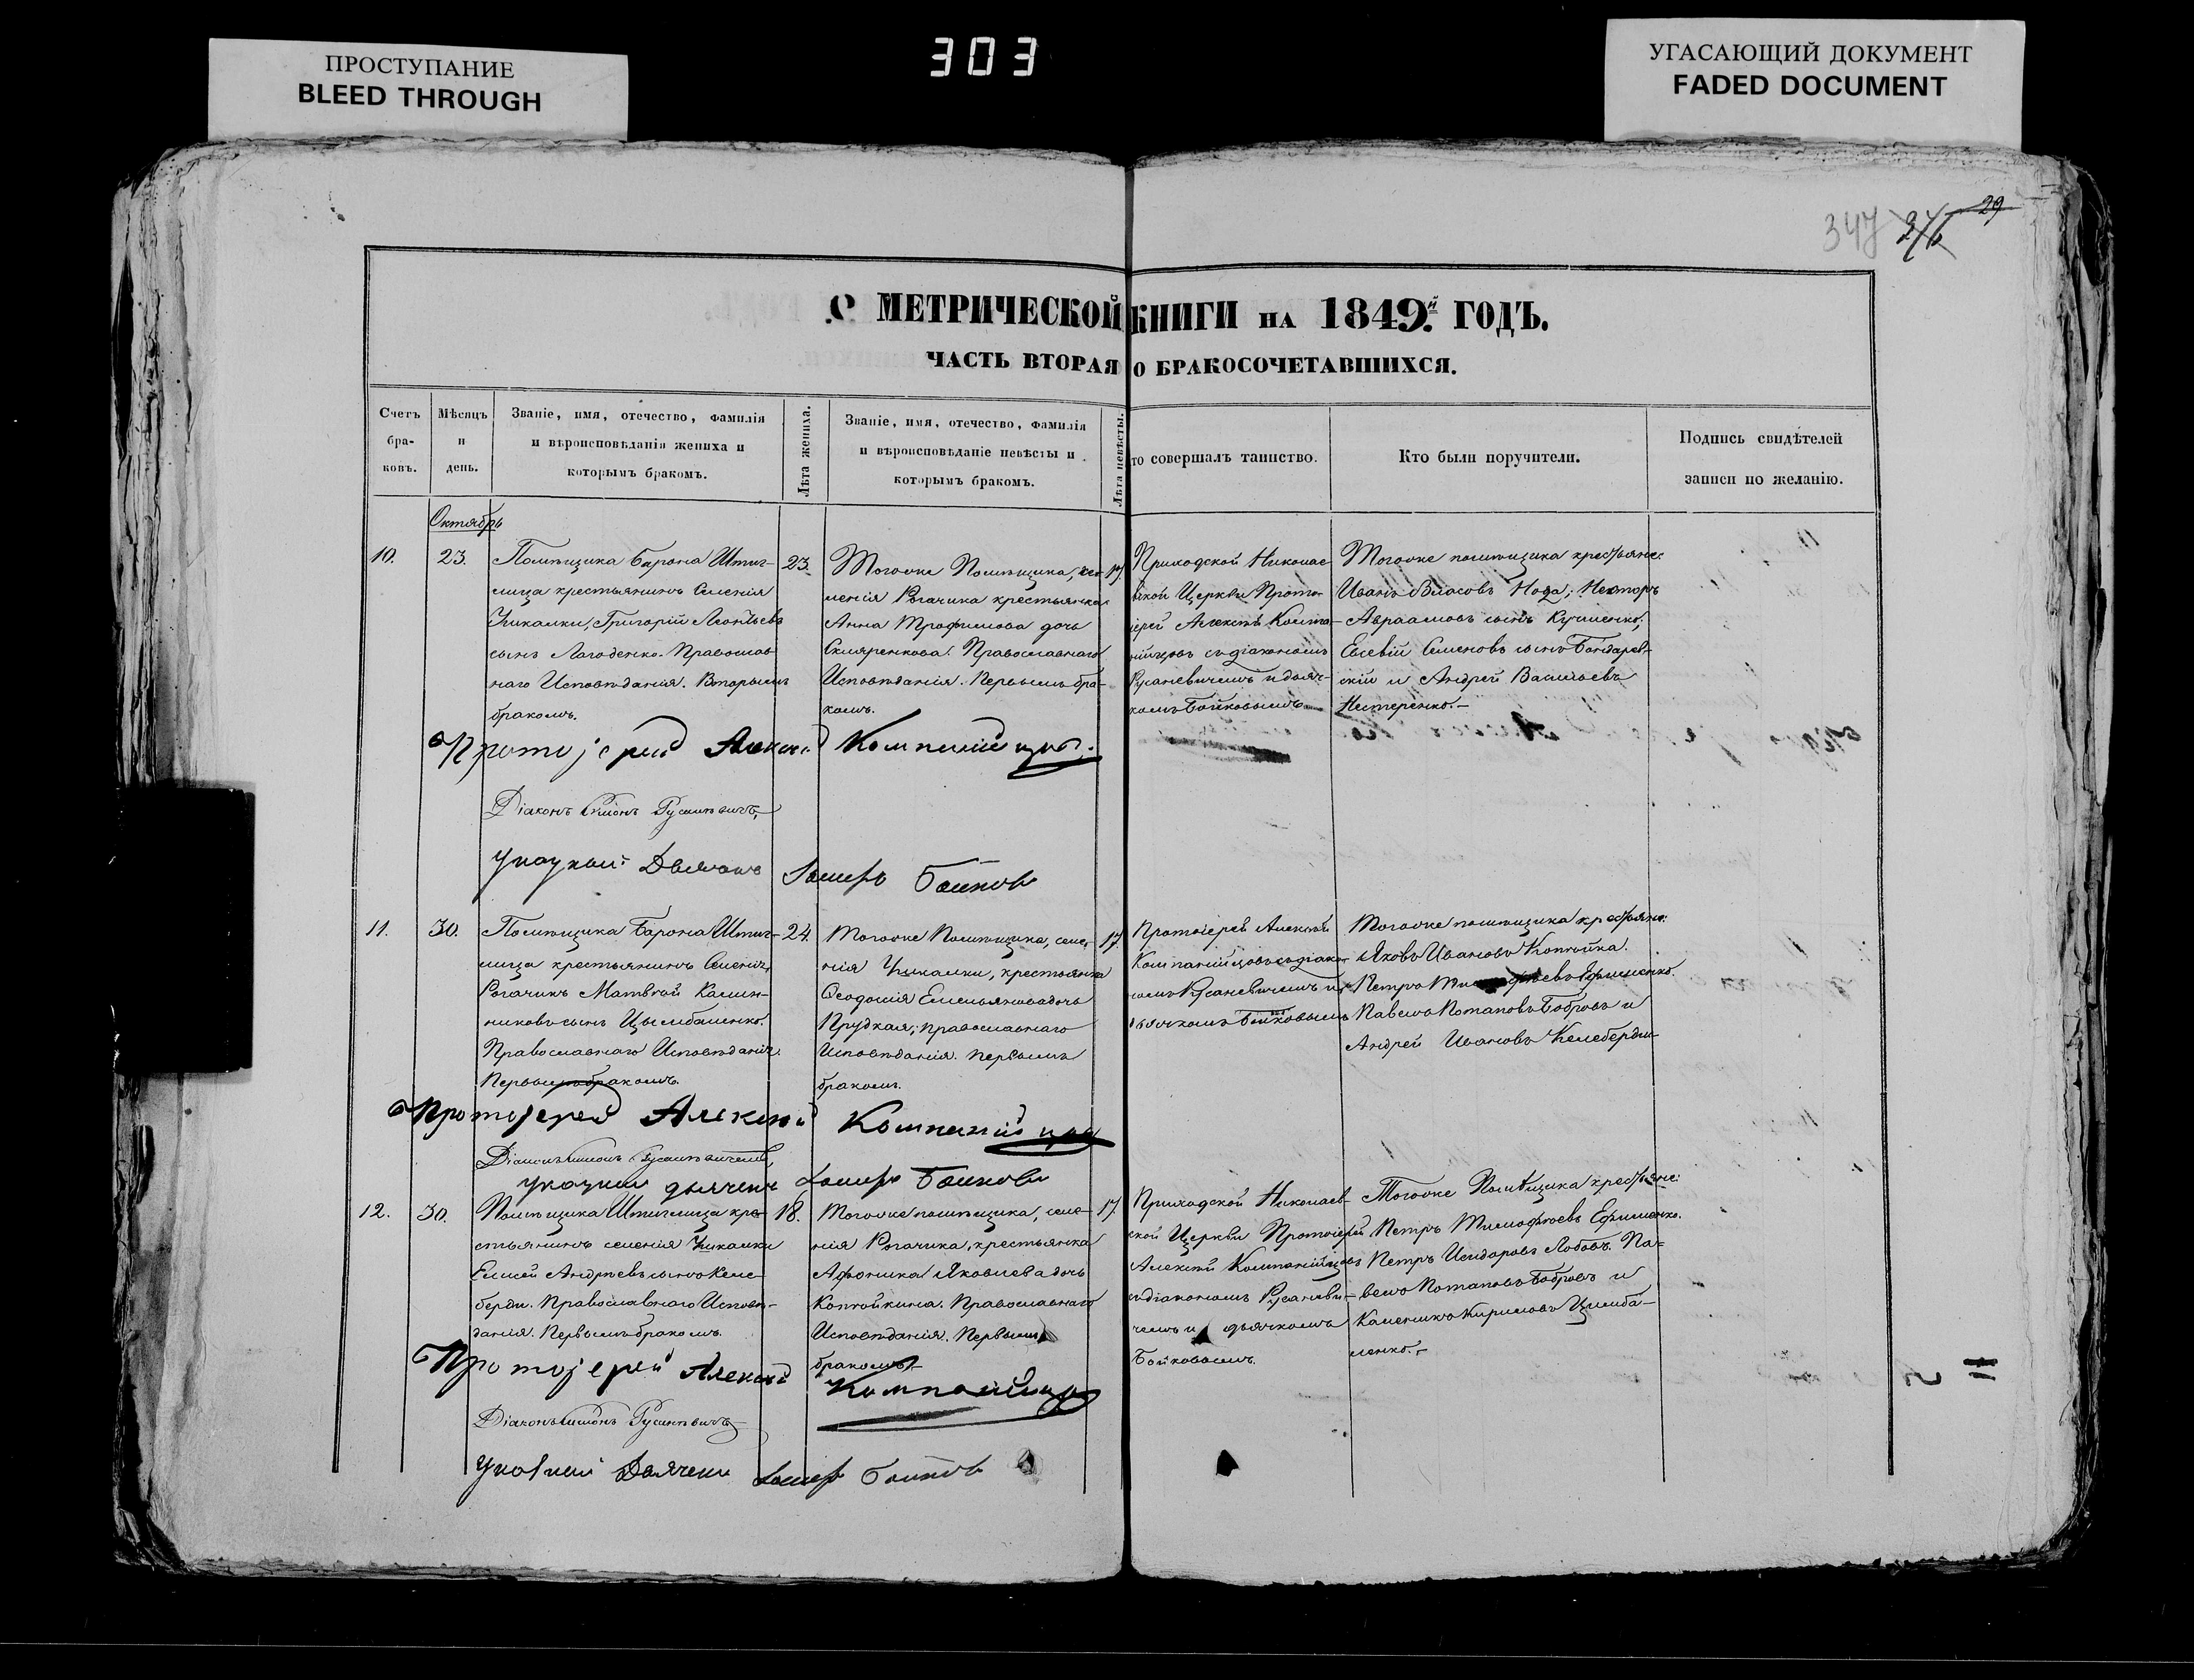 ПРОСТУПАНИЕ
BLEED THROUGH
303
УГАСАЮЩИЙ ДОКУМЕНТ
FADED DOCUMENT
347
29
МЕТРИЧЕСКОЙ КНИГИ НА 1849й ГОДЪ.
ЧАСТЬ ВТОРАЯ О БРАКОСОЧЕТАВШИХСЯ.
Счетъ
бра-
ковъ.
Мѣсяцъ
и
день.
Званіе, имя, отечество, фамилія
и вѣроисповѣданія жениха и
которымъ бракомъ.
Лѣта жениха.
Званіе, имя, отечество, фамилія
и вѣроисповѣданіе невѣсты и
которымъ бракомъ.
Лѣта невѣсты.
то совершалъ таинство.
Кто были поручители.
Подпись свидѣтелей
записи по желанію.
Октябрь
10.
23.
Помѣщика Барона Штиг-
лица крестьянинъ Селенія
Ушкалки, Григорій Леонтьевъ
сынъ Лагоденко. Православ-
наго Исповѣданія. Вторымъ
бракомъ.
23.
Тогоже Помѣщика, се-
ленія Рогачика крестьянка
Анна Трофимова дочь
Скляренкова. Православнаго
Исповѣданія. Первымъ бра-
комъ.
17.
Приходской Николае
вской Церкви Прото-
іерей Алексѣй Компа-
нійцовъ съ діакономъ
Русаневичемъ и дьяч-
комъ Бойковымъ
Тогоже помѣщика крестьяне:
Иванъ Власовъ Нога; Нестор
Авраамовъ сынъ Кучменко;
Евсевій Семеновъ сынъ Бондарев-
скій и Андрей Васильевъ
Нестеренко.-
Протоіерей Алексѣй Компанійцовъ.
Діаконъ Симонъ Русаневичъ,
Указный Дьячокъ Бойковъ
11.
30.
Помѣщика Барона Штиг-
лица крестьянинъ Селенія,
Рогачикъ Матвѣй Камен-
никовъ сынъ Цымбаленко.
Православнаго Исповѣданія.
Первымъ бракомъ.
24.
Тогоже Помѣщика, селе-
нія Ушкалки, крестьянка
Ѳеодосія Емельянова дочь
Прудкая; православнаго
Исповѣданія. Первымъ
бракомъ.
17.
Протоіерей Алексѣй
Компанійцовъ съ діако-
номъ Русаневичемъ и
дьячкомъ Бойковымъ
Тогоже помѣщика крестьяне:
Яковъ Ивановъ Копѣйка.
Петръ Тимофѣевъ Ефименко.
Павелъ Потаповъ Бобровъ и
Андрей Ивановъ Келеберди-
Протоіерей Алексѣй Компанійцовъ
Діаконъ Симонъ Русаневичъ,
указный дьячекъ Бойковъ
12.
30.
Помѣщика Штиглица кре-
стьянинъ селенія Ушкалки
Елисей Андреевъ сынъ Келе-
берди. Православнаго Исповѣ-
данія. Первымъ бракомъ.
18.
Тогоже помѣщика, селе-
нія Рогачика, крестьянка
Афоника Яковлева дочь
Копѣйкина. Православнаго
Исповѣданія. Первымъ
бракомъ.-
17.
Приходской Николаев-
ской Церкви Протоіерей
Алексѣй Компанійцовъ
съ діакономъ Русаневи-
чемъ и дьячкомъ
Бойковымъ.
Тогоже Помѣщика крестьяне:
Петръ Тимофѣевъ Ефименко.
Петръ Исидоровъ Лобовъ. Па-
велъ Потаповъ Бобровъ и
Каменикъ Кириловъ Цимба-
ленко.-
Протоіерей Алексѣй Компанійцовъ
Діаконъ Симонъ Русаневичъ
Указный Дьячекъ Бойковъ